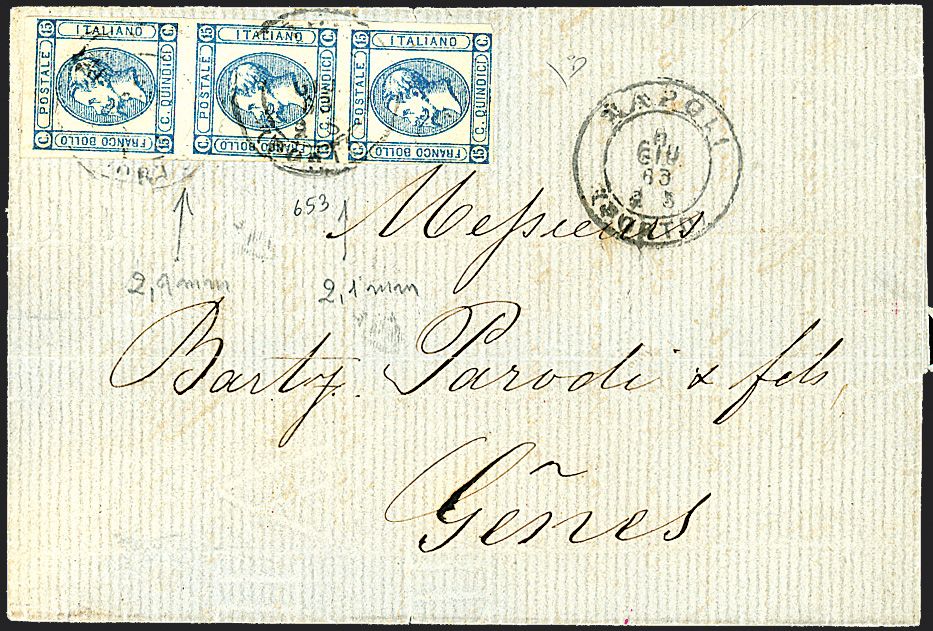 15 ITALIANO C.
POSTALE
C. QUINDICI
C. FRANCO BOLLO 15
15 ITALIANO C.
POSTALE
C. QUINDICI
C. FRANCO BOLLO 15
15 ITALIANO C.
POSTALE
C. QUINDICI
C. FRANCO BOLLO 15
NAPOLI
GIU
63
PORTO
653
Messieurs
2,1mm
Barty. Parodi & fils
Gênes